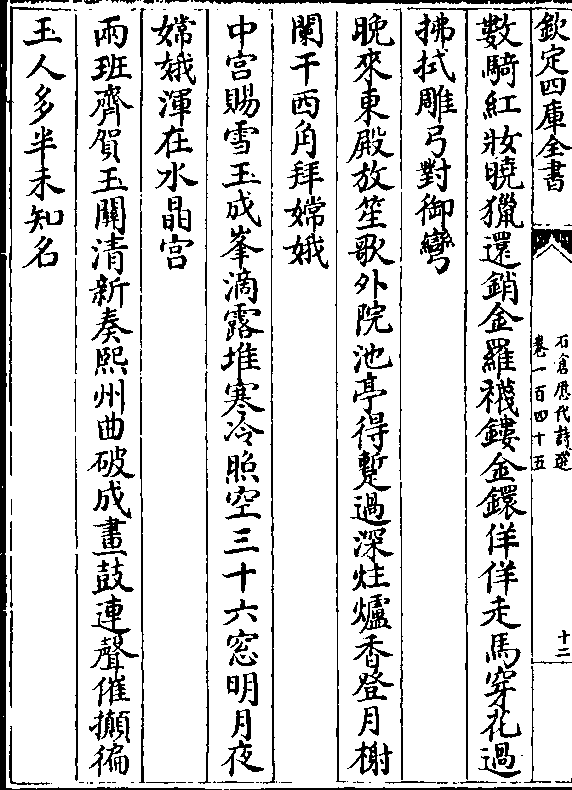 欽定四庫全書
石倉歷代詩選
卷一百四十五
十二
數騎紅妝曉獵還銷金羅襪鏤金鐶佯佯走馬穿花過
拂拭雕弓對御彎
晚來東殿放笙歌外院池亭得蹔過深炷爐香登月榭
闌干西角拜嫦娥
中宮賜雪玉成峯滴露堆寒冷照空三十六窓明月夜
嫦娥渾在水晶宮
兩班齊賀玉關清新奏熙州曲破成畫鼓連聲催攧徧
玉人多半未知名